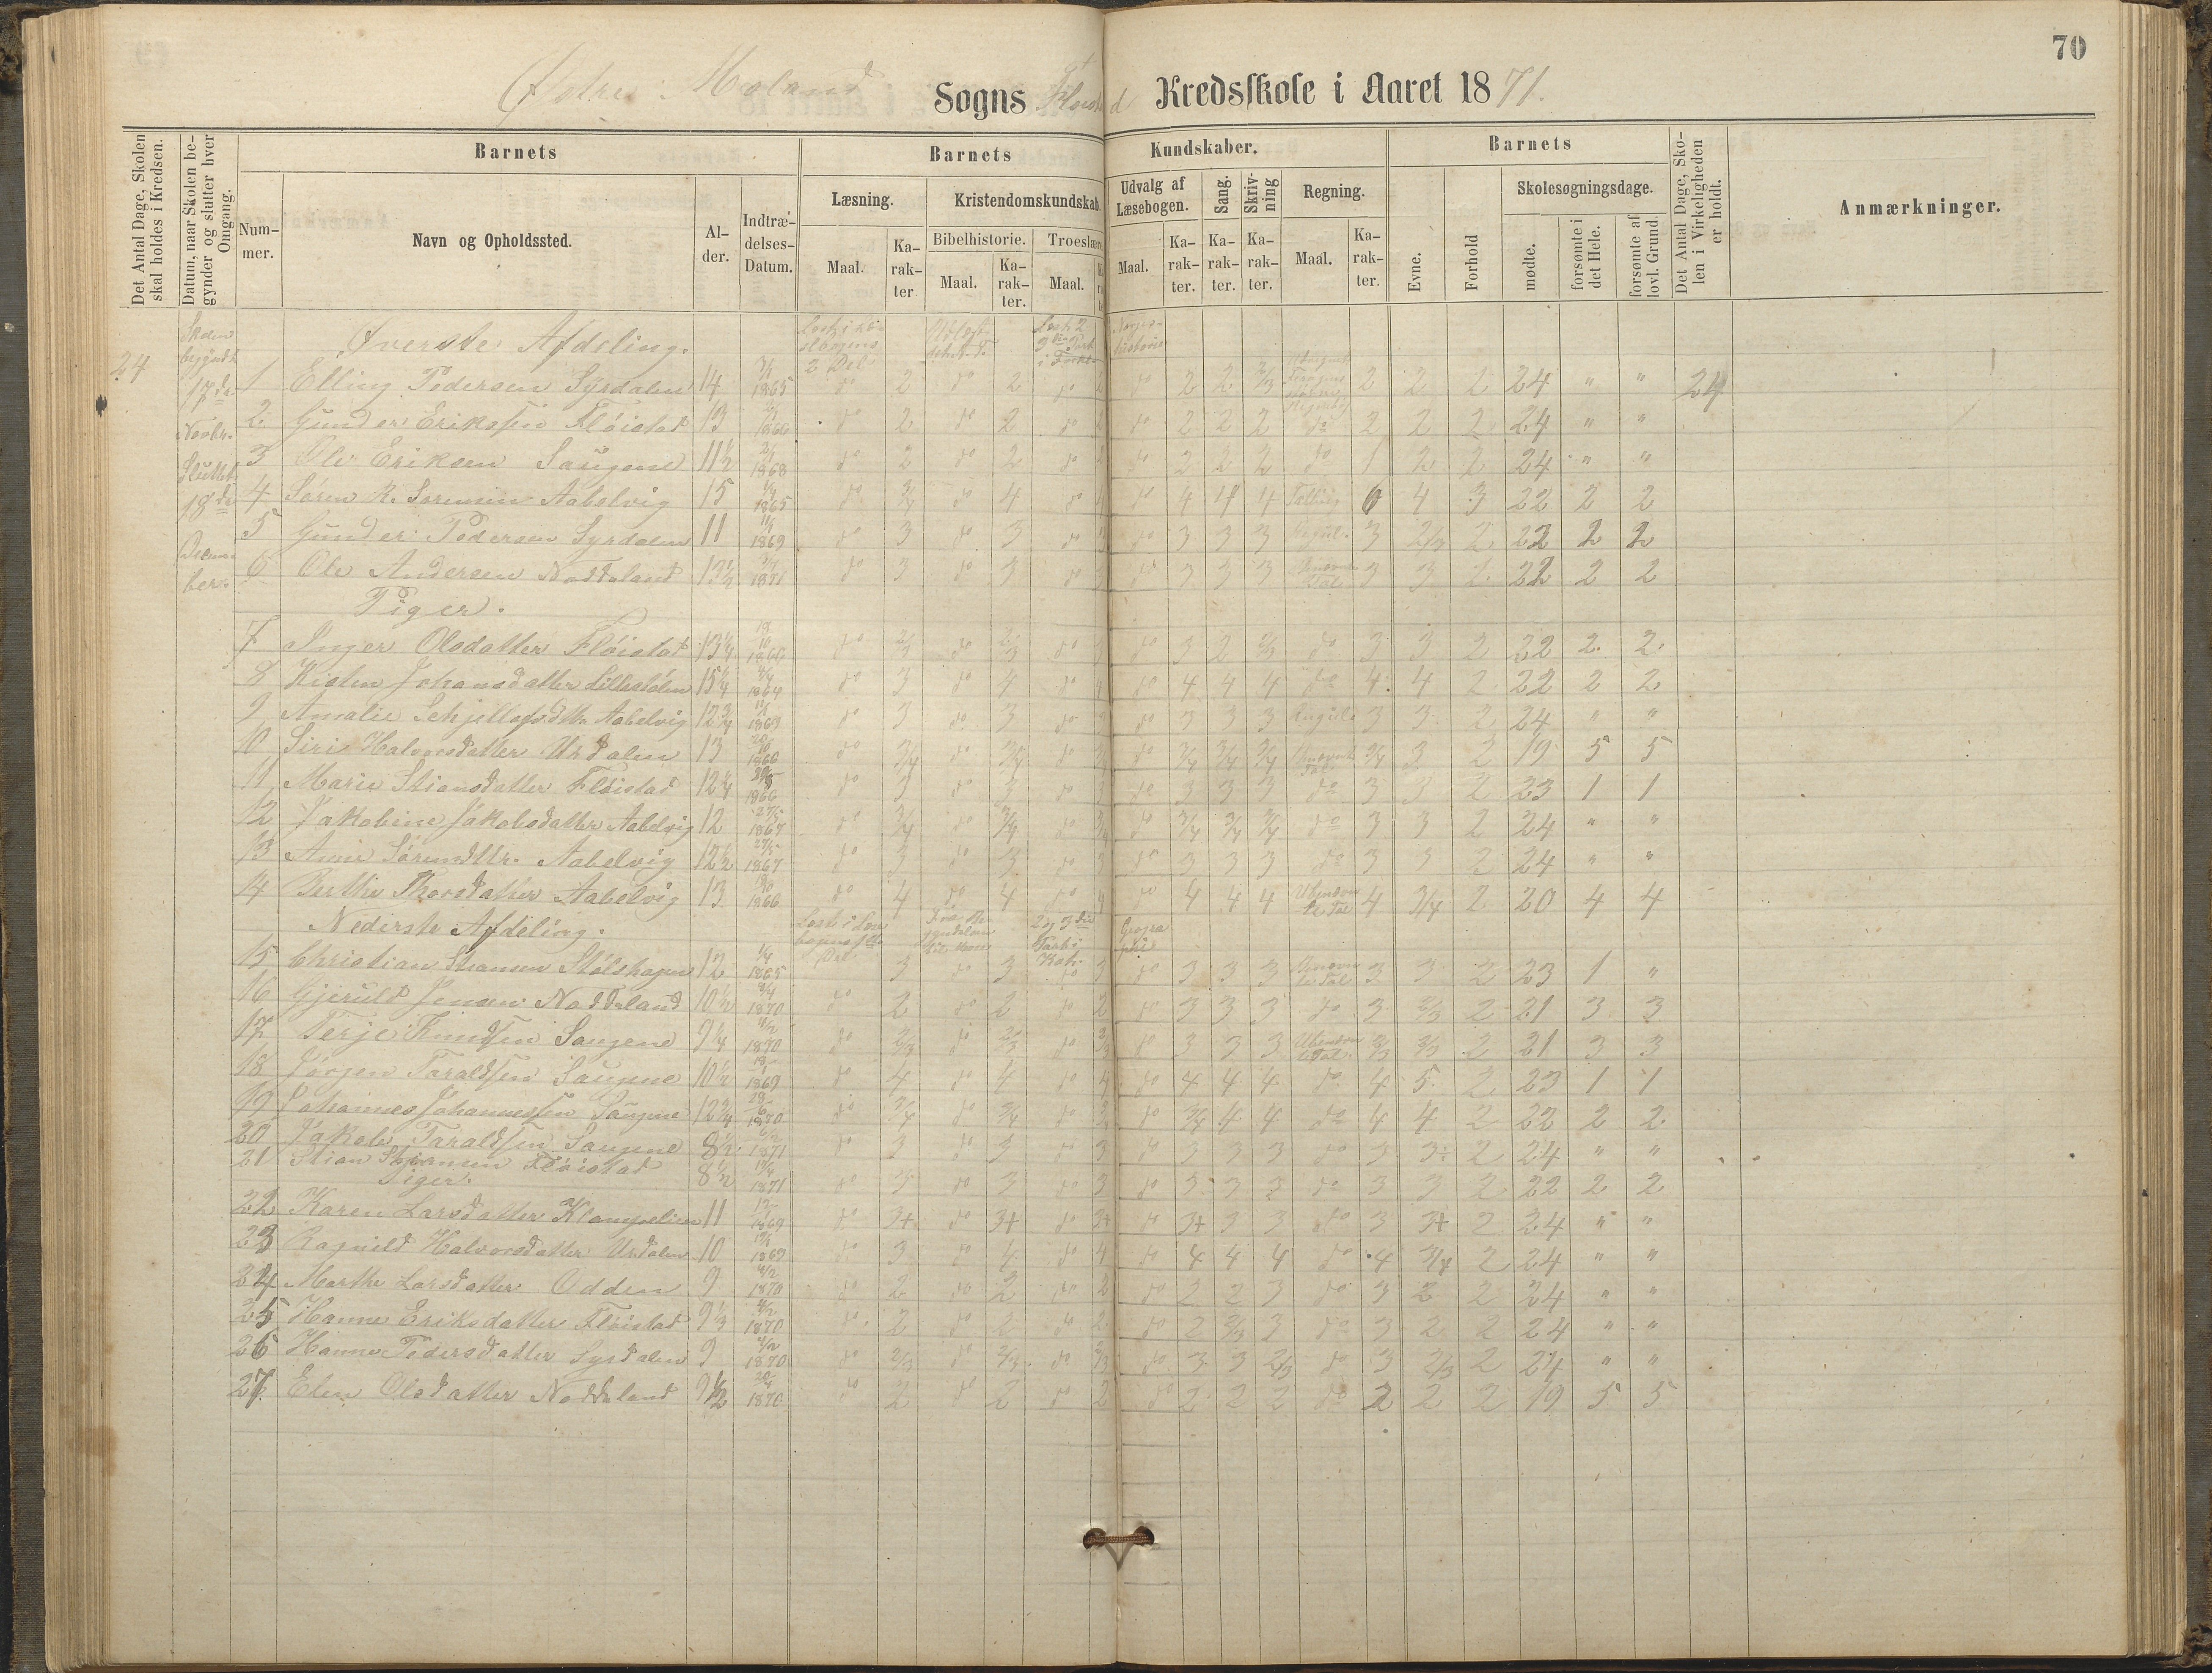 70
Østre Moland Sogns Fløistad Kredsskole i Aaret 1871.
Det Antal Dage, Skolen skal holdes i Kredsen.
Datum, naar Skolen begynder og slutter hver Omgang.
Barnets
Barnets Kundskaber.
Barnets
Det Antal Dage, Skolen i Virkeligheden er holdt.
Anmærkninger.
Nummer.
Navn og Opholdssted.
Alder.
Indtrædelses-Datum.
Læsning.
Kristendomskundskab.
Udvalg af Læsebogen.
Sang.
Skrivning
Regning.
Evne.
Forhold
Skolesøgningsdage.
Bibelhistorie.
Troeslære
Maal.
Karakter
Maal.
Karakter.
Maal.
Maal.
Karakter.
Karakter.
Karakter.
Maal.
Karakter.
mødte.
forsømte i det Hele.
forsømte af lovl. Grund.
24
Skolen
17de
Novbr.
Sluttet
18de
Decem-
ber.
Øverste Afdeling.
1 Elling Pedersen Syrdalen 14 1865 do 2 do 2 do do 2 2 2/3 2 2 2 24 " " 24
2. Gunder Eriksen Fløistad 13 1866 do 2 do 2 do do 2 2 2 do 2 2 2 24 " "
3 Ole Eriksen Saugene 11½ 1868 do 2 do 2 do do 2 2 2 do 1 2 2 24 " "
4 Søren R. Sørensen Aabelvig 15 1865 do 3/4 do 4 do do 4 4 4 6 4 3 22 2 2
5 Gunder Pedersen Syrdalen 11 1869 do 3 do 3 do do 3 3 3 3 2/3 2 22 2 2
6 Ole Andersen Naddeland 13½ 1871 do 3 do 3 do do 3 3 3 3 3 2 22 2 2
Piger.
7 Inger Olsdatter Fløistad 13¼ 1866 do 2/3 do 2/3 do do 3 2 2/3 do 3 3 2 22 2 2
8 Kisten Johansdatter 15¼ 1864 do 3 do 4 do do 4 4 4 do 4 4 2 22 2 2
9 Amalie 12¾ 1869 do 3 do 3 do do 3 3 3 3 3 2 24 " "
10 Siri Halvorsdatter Urdalen 13 1866 do 3/4 do 3/4 do do 3/4 3/4 3/4 3/4 3 2 19 5 5
11 Marie Stiansdatter Fløistad 12¼ 1866 do 3 do 3 do do 3 3 3 do 3 3 2 23 1 1
12 Jakobine Jakobsdatter Aabelvig 12 1867 do 3/4 do 3/4 do 3/4 do 3/4 3/4 3/4 do 3 3 2 24 " "
13 Anne Aabelvig 12½ 1867 do 3 do 3 do 3 do 3 3 3 do 3 3 2 24 " "
14 Berthe Thorsdatter Aabelvig 13 1866 do 4 do 4 do 4 do 4 4 4 4 3/4 2 20 4 4
Nederste Afdeling.
15 Christian Stølshagen 12 1865 3 do 3 do 3 do 3 3 3 3 3 2 23 1 "
16 Gjeruld Jensen Naddeland 10½ 1870 do 2 do 2 do 2 do 3 3 3 do 3 2/3 2 21 3 3
17 Terje Knudsen Saugene 9¼ 1870 do 2/3 do 2/3 do 2/3 do 3 3 3 2/3 2/3 2 21 3 3
18 Jørgen Taraldsen Saugene 10½ 1869 do 4 do 4 do 4 do 4 4 4 do 4 5 2 23 1 1
19 Johannes Johannessen Saugene 12¾ 1870 do 3/4 do 3/4 do do 3/4 4 4 do 4 4 2 22 2 2
20 Jakob Taraldsen Saugene 8½ 1871 do 3 do 3 do 3 do 3 3 3 do 3 3 2 24 " "
21 Stian Fløistad 8½ 1871 do 3 do 3 do 3 do 3 3 3 do 3 3 2 22 2 2
Piger.
22 Karen Larsdatter 11 1869 do 3+ do 3+ do 3+ do 3+ 3 3 do 3 3+ 2 24 " "
23 Ragnild Halvorsdatter Urdalen 10 1869 do 3 do 4 do 4 do 4 4 4 do 4 3/4 2 24 " "
24 Marthe Larsdatter Odden 9 1870 do 2 do 2 do 2 do 2 2 3 do 3 2 2 24 " "
25 Hanne Eriksdatter Fløistad 9⅓ 1870 do 2 do 2 do 2 do 2 2/3 3 do 3 2 2 24 " "
26 Hanne Pedersdatter Syrdalen 9 1870 do 2/3 do 2/3 do 2/3 do 3 3 2/3 do 3 2/3 2 24 " "
27 Elen Olsdatter Naddeland 9½ 1870 do 2 do 2 do 2 do 2 2 2 do 2 2 2 19 5 5